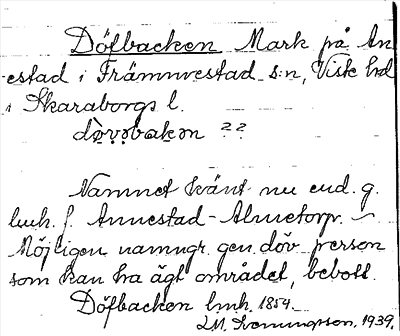 Döfbacken Mark på An
estad i Främmestad s:n, Viste hd
i Skaraborgs l.
dø̀vəbakən ??
Namnet känt nu end. g.
lmh. f. Annestad-Almetorp. –
Möjligen namngr. gen. döv person
som kan ha ägt området, bebott.
Döfbacken lmh. 1854.
LM. Svenungsson. 1939.